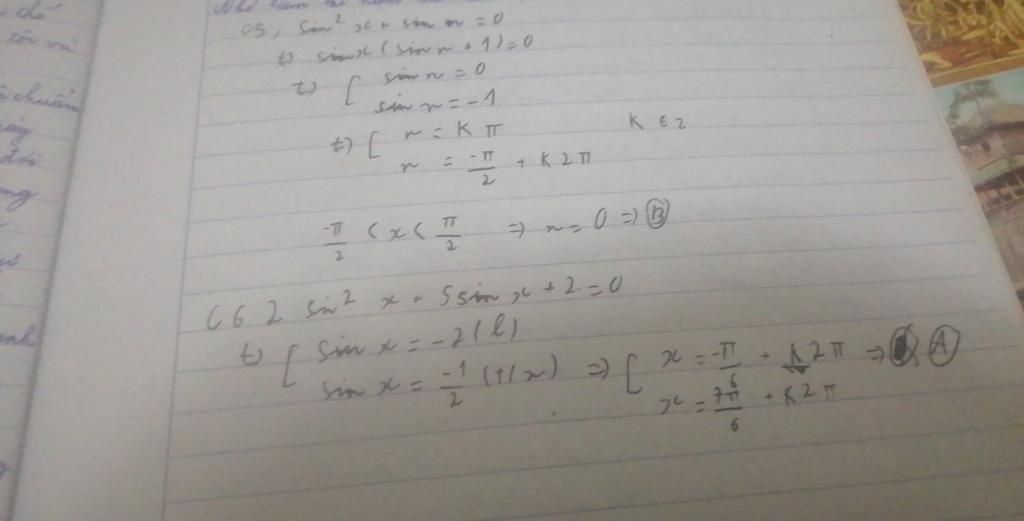 C5, sin² x + sin x = 0
⇔ sin x (sin x + 1) = 0
⇔ [ sin x = 0
sin x = -1
⇔ [ x = K π K ∈ Z
x = -π/2 + K2π
-π/2 < x < π/2 ⇒ x = 0 ⇒ B
C6 2 sin² x + 5 sin x + 2 = 0
⇔ [ sin x = -2 (l)
sin x = -1/2 (t/m) ⇒ [ x = -π/6 + K2π ⇒ A
x = 7π/6 + K2π